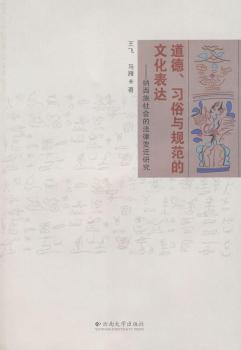 道德、习俗与规范的
文化表达
——纳西族社会的法律变迁研究
王飞 马雁 ★ 著
云南大学出版社